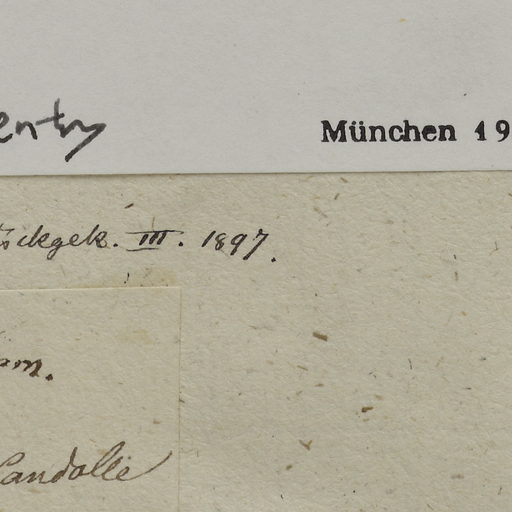 entry
München 19
tsickgek. III. 1897.
om.
Candolle